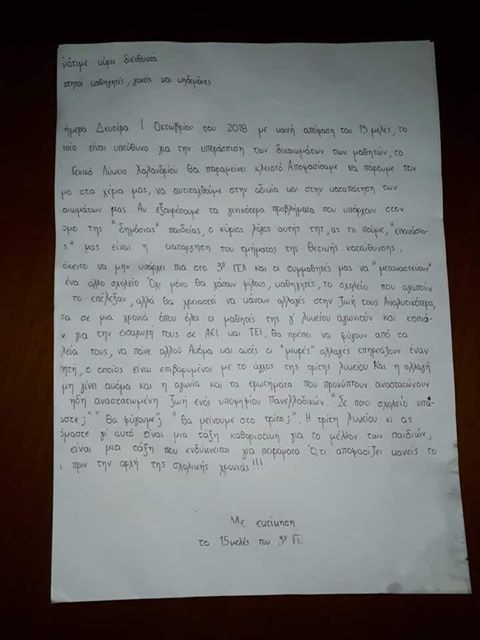 ιότιμε κύριε διευθυντά
απητοί καθηγητές, γονείς και κηδεμόνες
ήμερα Δευτέρα 1 Οκτωβρίου του 2018 με κοινή απόφαση του 15 μελές, το
οίο είναι υπεύθυνο για την υπεράσπιση των δικαιωμάτων των μαθητών, το
Γενικό Λύκειο Χαλανδρίου θα παραμείνει κλειστό Αποφασίσαμε να πάρουμε τον
μο στα χέρια μας, να αντιταχθούμε στην αδικία και στην καταπάτηση των
αιωμάτων μας. Αν εξαιρέσουμε τα γενικότερα προβλήματα που υπάρχουν στον
σμο της "δημόσιας" παιδείας, ο κύριος λόγος αυτής της, ας το πούμε, "επανάσα-
ς" μας είναι η κατάργηση του τμήματος της θετικής κατεύθυνσης.
όκειτο να μην υπάρχει πια στο 3ο ΓΕΛ και οι συμμαθητές μας να "μεταναστεύσουν"
ένα άλλο σχολείο Όχι μόνο θα χάσουν φίλους, καθηγητές, το σχολείο που αγαπούν
το επέλεξαν, αλλά θα χρειαστεί να κάνουν αλλαγές στην ζωή τους Αναλυτικότερα,
σα σε μια χρονιά όπου όλοι οι μαθητές της γ' λυκείου αγωνιούν και κοπιά-
ν για την εισαγωγή τους σε ΑΕΙ και ΤΕΙ, θα πρέπει να φύγουν από τα
λεία τους, να πάνε αλλού Ακόμα και αυτές οι "μικρές" αλλαγές επηρεάζουν έναν
ητή, ο οποίος είναι επιβαρυμένος με το άγχος της τρίτης λυκείου Και η αλλαγή
μη γίνει ακόμα και η αγωνία και τα ερωτήματα που προκύπτουν αναστατώνουν
ήδη αναστατωμένη ζωή ενός υποψηφίου Πανελλαδικών. "Σε ποιο σχολείο υπά-
αστε;" "Θα φύγουμε;" "Θα μείνουμε στο τρίτο;". Η τρίτη λυκείου κι ας
όμαστε γι' αυτό είναι μια τάξη καθοριστική για το μέλλον των παιδιών,
είναι μια τάξη που ενδύκνειται για πειράματα Ό,τι αποφασίζει κανείς το
πριν την αρχή της σχολικής χρονιάς!!!
Με εκτίμηση
το 15μελές του 3ο ΓΕ